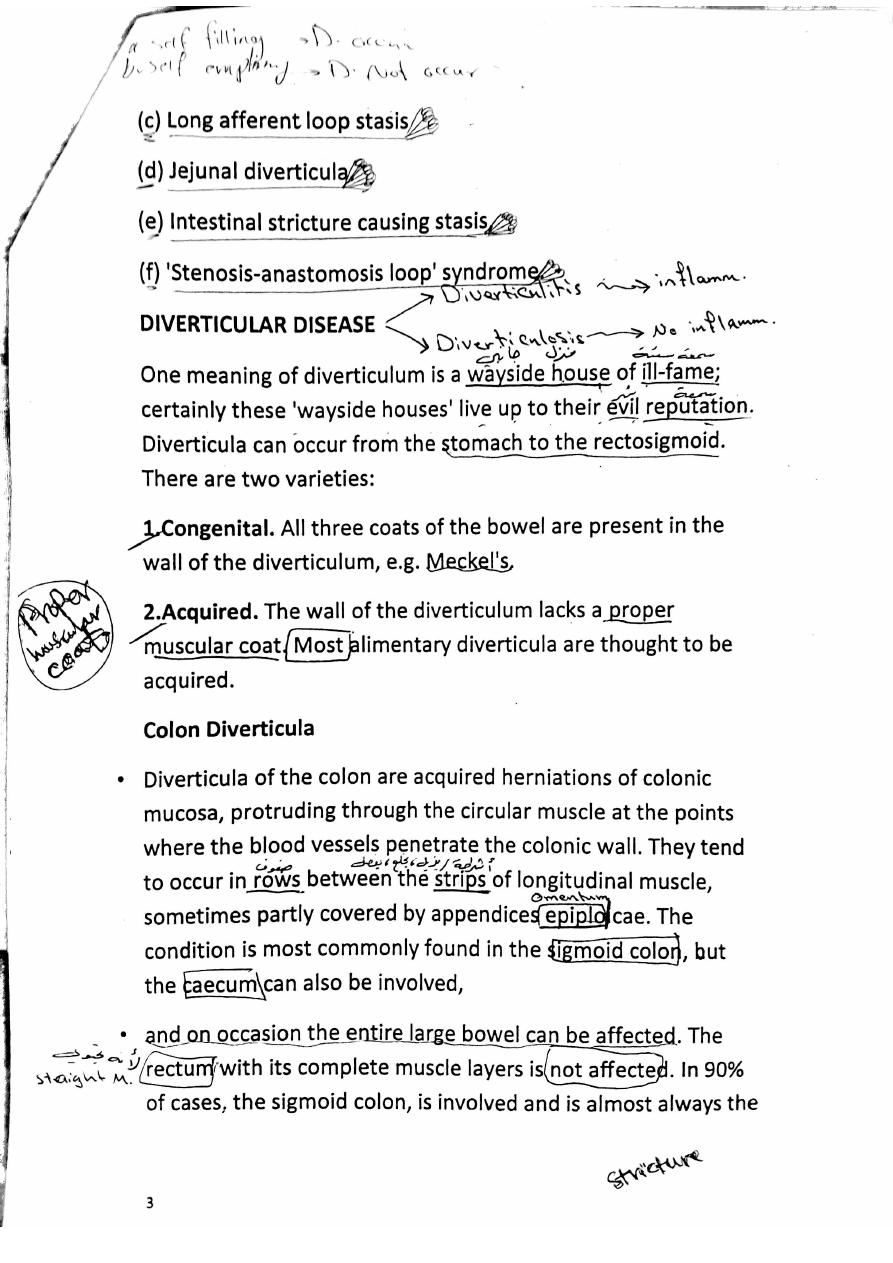 a self filling → D. occur
b. self emptying → D. Not occur
(c) Long afferent loop stasis
(d) Jejunal diverticula
(e) Intestinal stricture causing stasis
(f) 'Stenosis-anastomosis loop' syndrome
Diverticulitis → inflamm.
DIVERTICULAR DISEASE
Diverticulosis → No inflamm.
منزل جانبي سمعة سيئة
One meaning of diverticulum is a wayside house of ill-fame;
certainly these 'wayside houses' live up to their evil reputation.
Diverticula can occur from the stomach to the rectosigmoid.
There are two varieties:
1.Congenital. All three coats of the bowel are present in the
wall of the diverticulum, e.g. Meckel's,
2.Acquired. The wall of the diverticulum lacks a proper
muscular coat. Most alimentary diverticula are thought to be
acquired.
Proper
muscular
coat
Colon Diverticula
• Diverticula of the colon are acquired herniations of colonic
mucosa, protruding through the circular muscle at the points
where the blood vessels penetrate the colonic wall. They tend
صفوف أشرطة
to occur in rows between the strips of longitudinal muscle,
omentum
sometimes partly covered by appendices epiploicae. The
condition is most commonly found in the sigmoid colon, but
the caecum can also be involved,
• and on occasion the entire large bowel can be affected. The
rectum with its complete muscle layers is not affected. In 90%
staight M.
of cases, the sigmoid colon, is involved and is almost always the
stricture
3